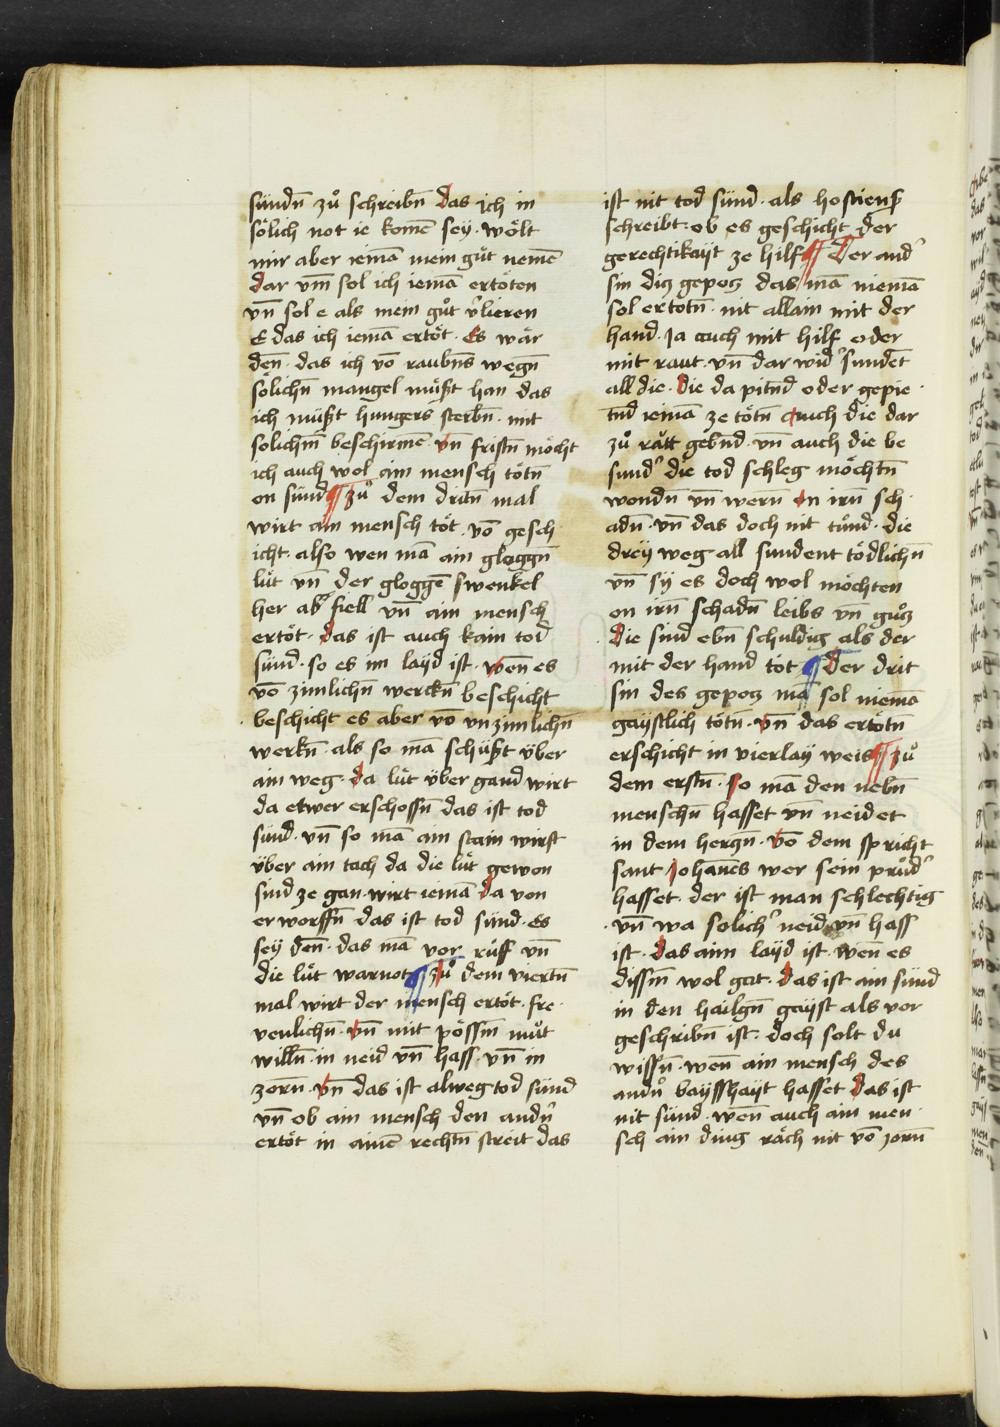 sündn̄ zů schreibn̄ das ich in
sölich not ie komē sey · wölt
mir aber iemā mein gůt nemē
dar vm̄ sol ich iemā ertöten
vn̄ sol e als mein gůt v̾lieren
E das ich iemā ertöt · Es wär
den̄ · das ich vō raubn̄s wegn̄
sölichn̄ mangel müßt han das
ich müßt hungers sterbn̄ · mit
solichm̄ beschirmē · vn̄ fristn̄ möcht
ich auch wol ain mensch tötn̄
on sünd ¶ Zů dem dritn̄ mal
wirt ain mensch töt · vō gesch
icht · also wen mā ain gloggn̄
lüt vn̄ der glogge swenkel
her ab fiell vn̄ ain mensch
ertöt · das ist auch kain tod
sünd · so es im layd ist · wen̄ es
vō zimlichn̄ werckn̄ beschicht
beschicht es aber vō vnzimlichn̄
werkn̄ · als so mā schüßt über
ain weg · da lüt über gand wirt
da etwer erschossn̄ das ist tod
sünd · vn̄ so mā ain stain wirft
über ain tach da die lüt gewon
sind ze gan · wirt iemā da von
erworffn̄ das ist tod sünd · Es
sey den̄ · das mā vor rüff vn̄
die lüt warnot ¶ Zů dem viertn̄
mal wirt der mensch ertöt · fre
uenlichn̄ · vn̄ mit pössm̄ můt
willn̄ · in neid vn̄ hass · vn̄ in
zorn̄ · vn̄ das ist alweg tod sünd
vn̄ ob ain mensch den andn̾
ertöt in ainē rechtn̄ streit das
ist nit tod sünd · als hostiens̾
schreibt · ob es geschicht der
gerechtikayt ze hilf ¶ Der and̾
sin diz gepotz das mā niemā
sol ertotn̄ · nit allain mit der
hand · Ja auch mit hilf oder
mit raut · vn̄ dar wid̾ sundet
all die · Die da pitn̄d oder gepie
tn̄d iemā ze tötn̄ auch die dar
zů rätt gebn̄d · vn̄ auch die be
sund̾ die tod schleg möchtn̄
wendn̄ vn̄ wern̄ on irn̄ sch
adn̄ · vn̄ das doch nit tůnd · die
drey weg all sundent tödlichn̄
vn̄ sy es doch wol möchten
on irn̄ schadn̄ leibs vn̄ gůtz
Die sind ebn̄ schuldig als der
mit der hand töt ¶ Der drit
sin des gepotz mā sol niemā
gaystlich tötn̄ · vn̄ das ertötn̄
erschicht in vierlay weis ¶ Zů
dem erstn̄ · so mā den nebn̄
menschn̄ hasset vn̄ neidet
in dem hertzn̄ · vō dem spricht
sant Johānes wer sein průd̾
hasset · der ist man schlechtig
vn̄ wa solich̾ neid vn̄ hass
ist · das aim layd ist · wen̄ es
dissm̄ wol gat · das ist ain sünd
in den hailgn̄ gayst als vor
geschribn̄ ist · doch solt du
wissn̄ · wen̄ ain mensch des
andn̾ bayshayt hasset das ist
nit sünd · wen̄ auch ain men
sch ain ding räch nit vō zorn̄